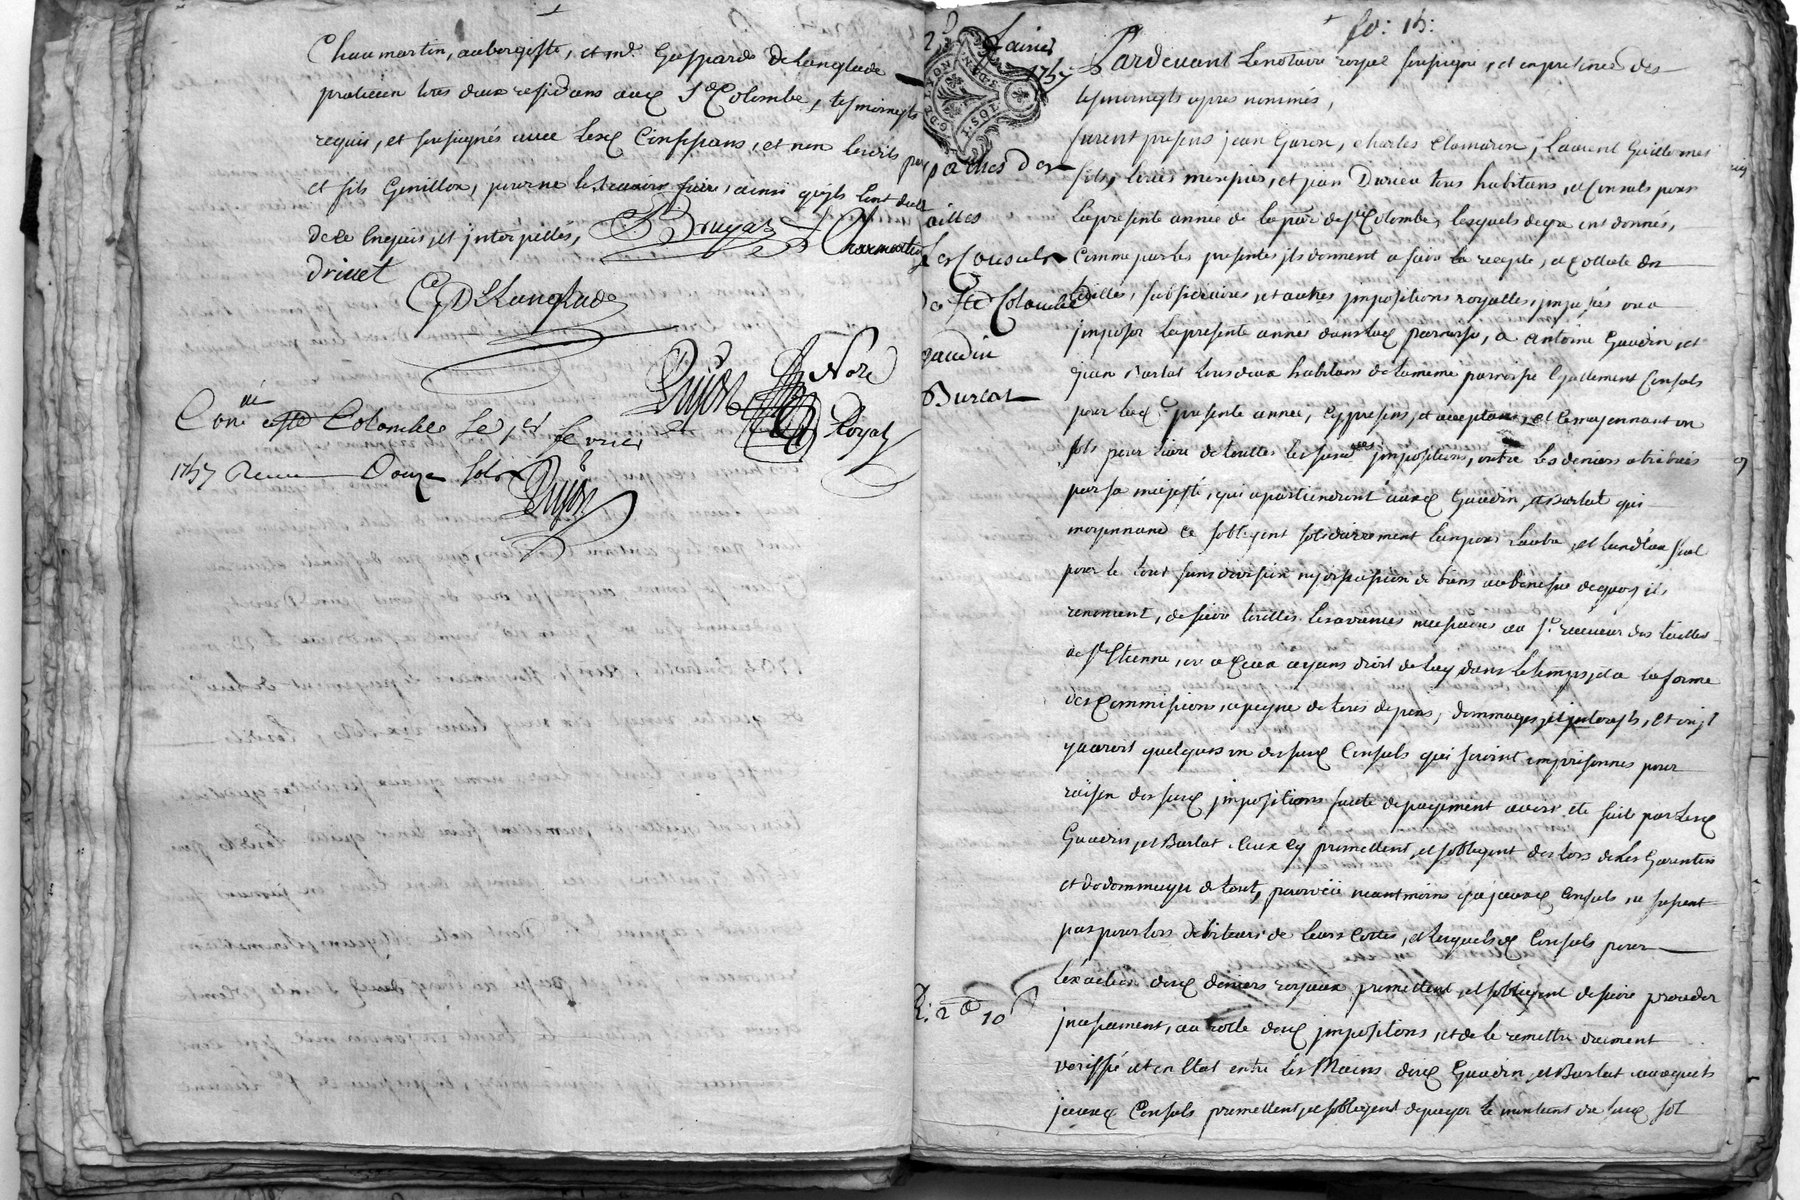 Chaumartin, aubergiste, et mr. Gaspard Delanglade
praticien tous deux residans aud Ste Colombe, tesmoingts
requis, et soussignés avec lesd Conssorans, et non lesdits per
et fils Genillon, pour ne le scavoir faire, ainsi qu'ils lont declt
de ce Enquis, et interpellés,
Bruyas Chaumartin
drivet
C DeLanglade
Dujon Nore
Royal
Conlé a Ste Colombe Le 1er fevrier
1757 Receu Douze sols
Dujon
fo: 15:
2 Janvier
1757
G. DE LYON
1.SOL
paches des
tailles
Les Consuls
de Ste Colombe
gaudin
Burlat
R: 2 10
Pardevant Le notaire royal soussigné, et en presence des
tesmoingts apres nommés,
furent presens jean Garon, charles Clamaron, Laurent Guillermes
fils, Louis mespier, et jean Durieu tous habitans, et Consuls pour
la presente année de la par de Ste Colombe, lesquels de gre ont donnés,
comme par les presentes ils donnent a faire la recepte, et Collete des
tailles, subsidiaires, et autres jmpositions royalles, jmposés ou a
jmposer La presente année dans lad parroisse, a antoine Gaudin, et
jean Burlat tous deux habitans de la meme parroisse Egallement Consuls
pour lad presente année, cy presens, et acceptans, et ce moyennant un
sols pour livre de touttes les susdes jmpositions, outre les deniers atribués
par sa majesté, qui apartiendront auxd Gaudin, et Burlat qui
moyennant ce sobligent solidairement lun pour lautre, et lun deux seul
pour le tout sans division ny discussion de biens au benefice dequoy ils
renoncent, de faire touttes les avances necessaires au Sr. receveur des tailles
de St Etienne, ou a Ceux ayans droit de luy dans le temps, et a la forme
des Commissions, a peyne de tous depens, dommages, et jnterests, et ou jl
y auroit quelques un desd Consuls qui seroint emprisonnes pour
raison desd jmpositions faute de payement avoir eté fait par lesd
Gaudin, et Burlat. Ceux cy promettent, et sobligent des lors de les Garentir
et dedommager de tout, pourveu neantmoins que jceuxd Consuls ne soyent
pas pour lors debiteurs de leurs Cottes, et lesquels Consuls pour
lexaction desd deniers royaux promettent, et sobligent de faire proceder
jncessament, au rolle desd jmpositions, et de le remettre duement
veriffié et en Etat entre les Mains desd Gaudin, et Burlat auxquels
jceuxd Consuls promettent, et sobligent de payer le montant du susd sol